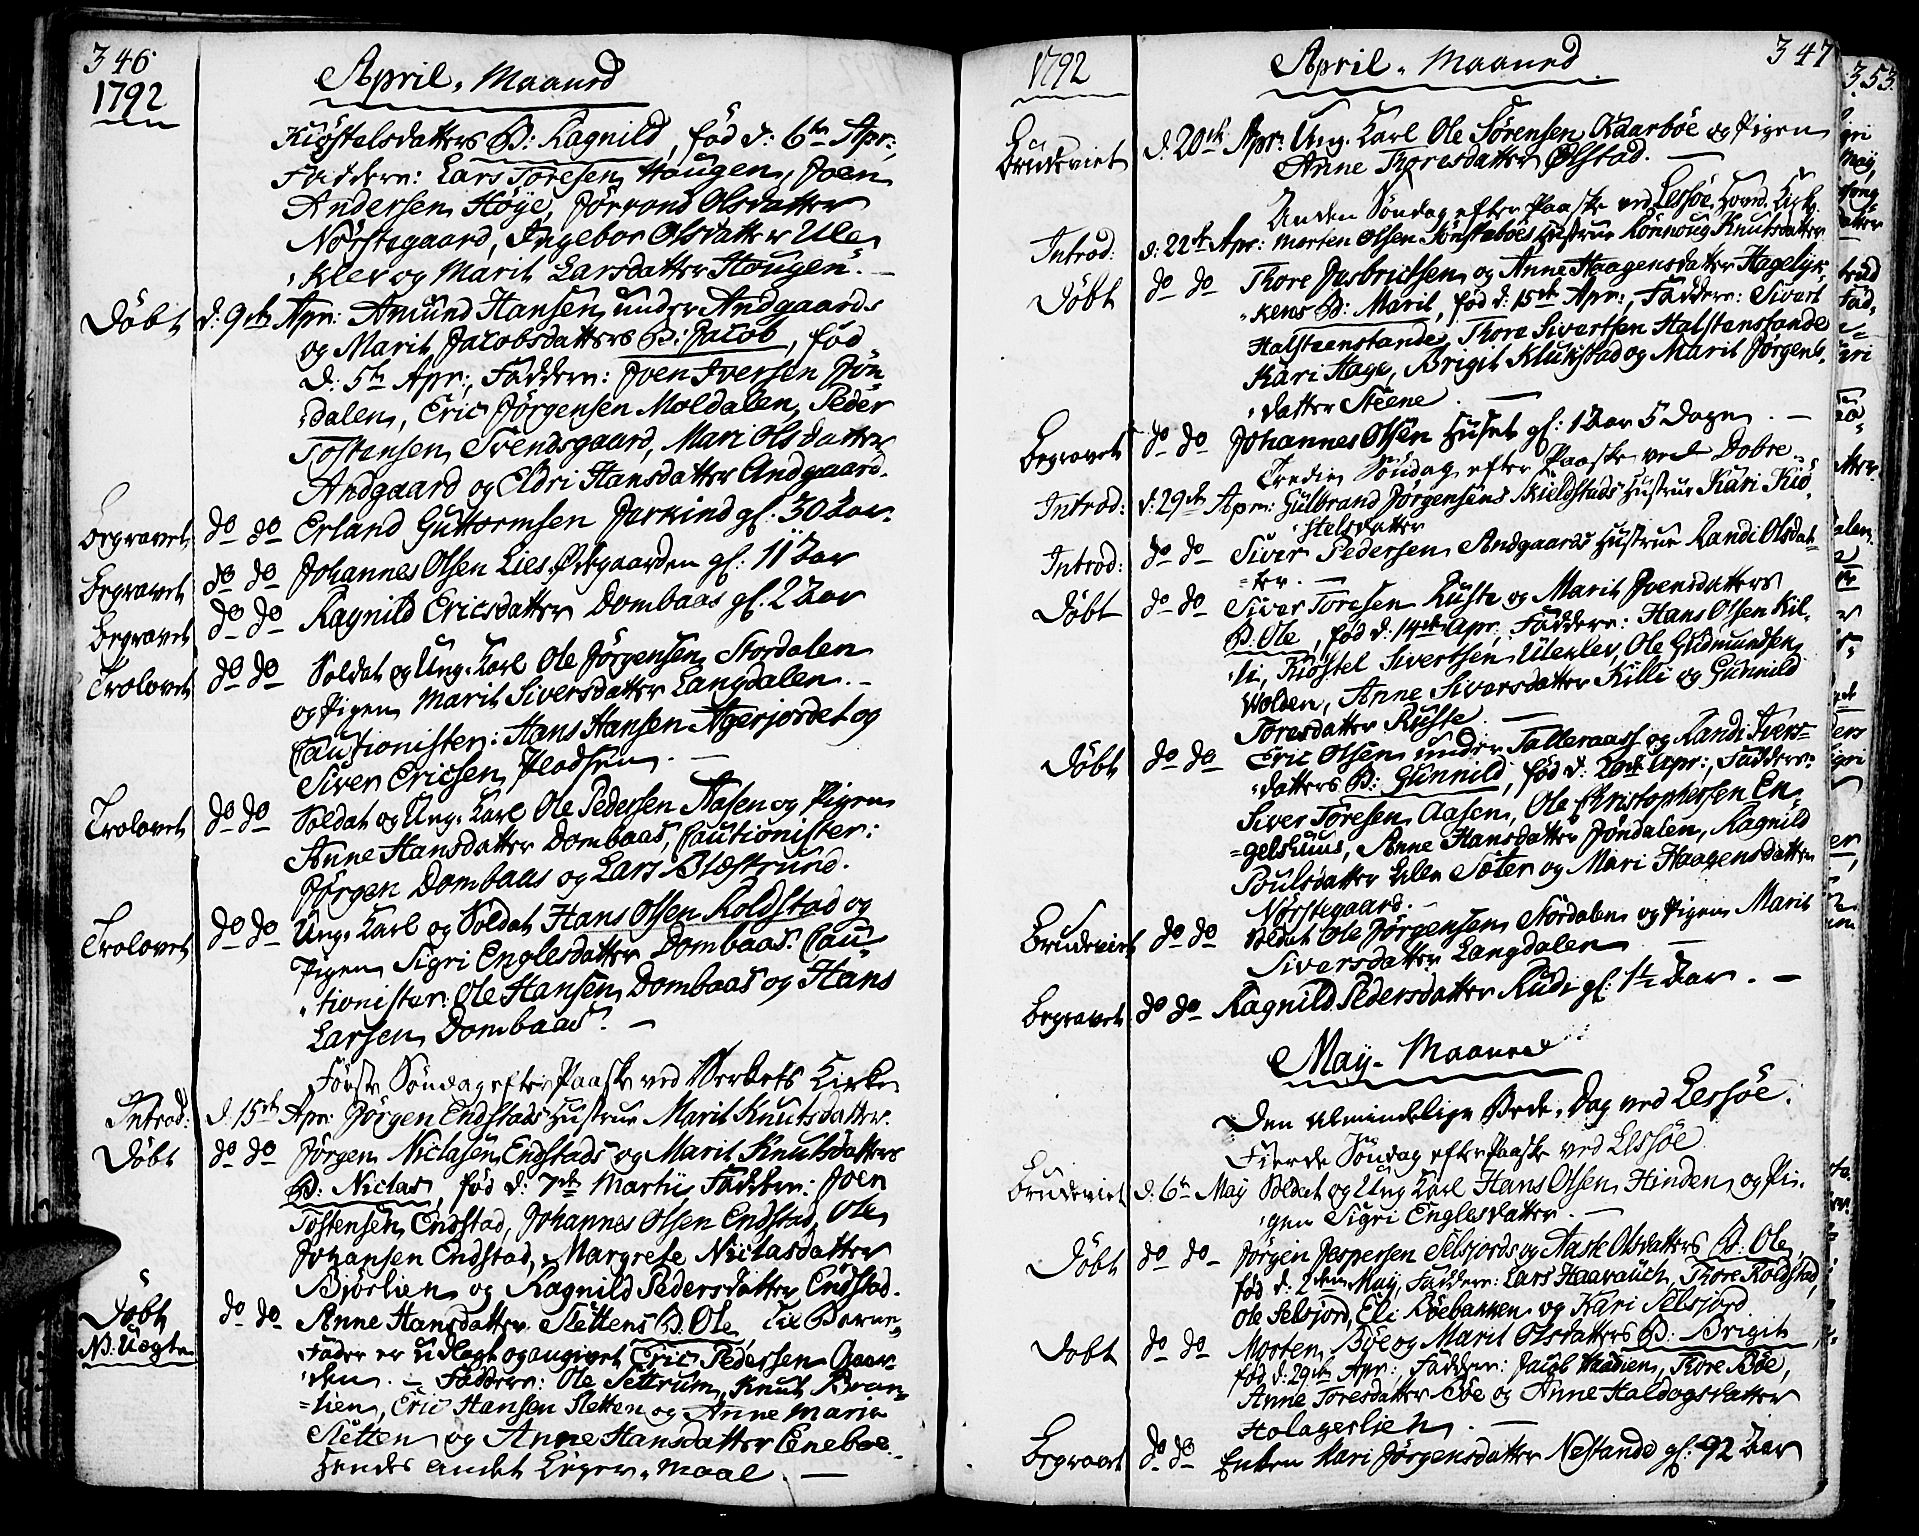 346
1792
April Maaned
Kiøstelsdatters B: Ragnild, fød d: 6te Apr:,
Faddere: Lars Toresen Haugen, Joen
Andersen Høye, Jørrond Olsdatter
Nørstegaard, Ingebor Olsdatter Ule-
klev og Marit Larsdatter Hougen. -
Døbt d. 9de Apr: Amund Hansen under Andgaards
og Marit Jacobsdatters B: Jacob, fød
d: 5te Apr:, Faddere: Joen Iversen Jøn-
dalen, Eric Jørgensen Moldalen, Peder
Tostensen Svendsgaard, Mari Olsdatter
Andgaard og Eldri Hansdatter Andgaard.
Begravet do do Erland Guttormsen Jarkind gl: 30 Aar.
Begravet do do Johannes Olsen Lies Øvegaarden gl: 11 Aar
Begravet do do Ragnild Ericsdatter Dombaas gl. 2 Aar
Trolovet do do Soldat og Ung-Karl Ole Jørgensen Stordalen
og Pigen Marit Siversdatter Langdalen. -
Cautionister: Hans Hansen Agerjordet og
Siver Ericsen Pladsen. -
Trolovet do do Soldat og Ung-Karl Ole Pedersen Aasen og Pigen
Anne Hansdatter Dombaas, Cautionister:
Jørgen Dombaas og Lars Blæstrund.
Trolovet do do Ung-Karl og Soldat Hans Olsen Roldstad og
Pigen Sigri Englesdatter Dombaas. Cau-
tionister: Ole Hansen Dombaas og Hans
Larsen Dombaas. -
Første Søndag efter Paaske ved Werkets Kirke
Introd: d. 15de Apr: Jørgen Endstads Hustrue Marit Knutsdatter.
Døbt do do Jørgen Niclasen Endstads og Marit Knutsdatters
B: Niclas, fød d: 7de Martii Faddere: Joen
Tostensen Endstad, Johannes Olsen Endstad, Ole
Johansen Endstad, Margrete Niclasdatter
Bjørlien og Ragnild Pedersdatter Endstad.
Døbt do do Anne Hansdatter Slettens B. Ole, til Barne-
N. Uægte Fader er udlagt og angivet Eric Pedersen Gaar-
den. - Faddere: Ole Settrum, Knut Bran-
lien, Eric Hansen Sletten og Anne Maria
Sletten og Anne Hansdatter Eneboe.
Hendes andet Leyer-maal. -
1792
April Maaned
347
Brudeviet d. 20de Apr: Ung-Karl Ole Sørensen Kaarbøe og Pigen
Anne Thoresdatter Ølstad. -
Anden Søndag efter Paaske ved Lessøe Hoved Kirke
Introd: d: 22de Apr: Morten Olsen Tønstebøes Hustrue Rønnoug Knutsdatter
Døbt do do Thore Jusbrichsen og Anne Haagensdatter Hagelyk-
kens B: Marit, fød d: 15de Apr:, Faddere: Sivert
Halsteenstande, Thore Sivertsen Halstenstande
Kari Hage, Brigit Klukstad og Marit Jørgens-
datter Steene. -
Begravet do do Johannes Olsen Huset gl: 1 Aar 5 Dage. -
Tredie Søndag efter Paaske ved Dobre
Introd: d: 29de Apr: Gulbrand Jørgensens Skieldstads Hustrue Kari Kiø-
stelsdatter
Introd: do do Siver Pedersen Andgaards Hustrue Randi Olsdat-
ter. -
Døbt do do Siver Toresen Ruste og Marit Joensdatters
B. Ole, fød d: 14de Apr:, Faddere: Hans Olsen Kil-
li, Kiøstel Sivertsen Uleklev, Ole Gudmundsen
Wolden, Anne Siversdatter Killi og Gunnild
Toresdatter Ruste. -
Døbt do do Eric Olsen under Talleraass og Randi Ivers-
datters B: Gunnild, fød d: 20de Apr:, Faddere:
Siver Toresen Aasen, Ole Christophersen En-
gelshuus, Anne Hansdatter Jøndalen, Ragnild
Poulsdatter Ulen Sæter og Mari Haagensdatter
Nørstegaard. -
Brudeviet do do Soldat Ole Jørgensen Stordalen og Pigen Marit
Siversdatter Langdalen -
Begravet do do Ragnild Pedersdatter Rudi gl: 1½ Aar. -
May-Maaned
Den Almindelige Bede-Dag ved Lessøe.
Fierde Søndag efter Paaske ved Lessøe
Brudeviet d: 6te May Soldat og Ung Karl Hans Olsen Hinden og Pi-
gen Sigri Englesdatter. -
Døbt do do Jørgen Jespersen Selsjords og Aase Olsdatters B: Ole,
fød d: 2den May, Faddere: Lars Haarauch, Thore Roldstad,
Ole Selsjord, Eli Bøebakken og Kari Selsjord.
Døbt do do Morten Bøe og Marit Olsdatters B: Brigit,
fød d: 29de Apr: Faddere: Jacob Haadien, Thore Bøe,
Anne Toresdatter Bøe og Anne Haldogsdatter
Holagerlien. -
Begravet do do Enken Mari Jørgensdatter Nestande gl: 92 Aar
353